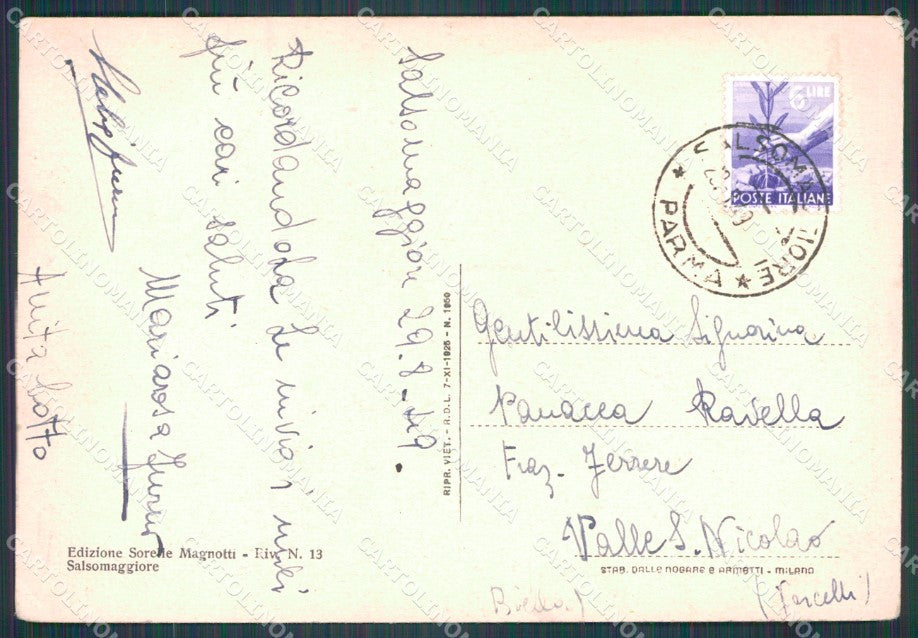 Salsomaggiore 29.8.49.
Ricordandola Le invio i miei
più cari saluti
Mariarosa
Anita Botto
6 LIRE
POSTE ITALIANE
SALSOMAGGIORE
★ PARMA ★
Gentilissima Signorina
Panacea Ravella
Fraz. Ferrere
Valle S. Nicolao
(Vercelli)
RIPR. VIET. - A.D.L. 7-XI-1925 - N. 1950
Edizione Sorelle Magnotti - Riv. N. 13
Salsomaggiore
STAB. DALLE NOGARE E ARMETTI - MILANO
CARTOLINOMANIA